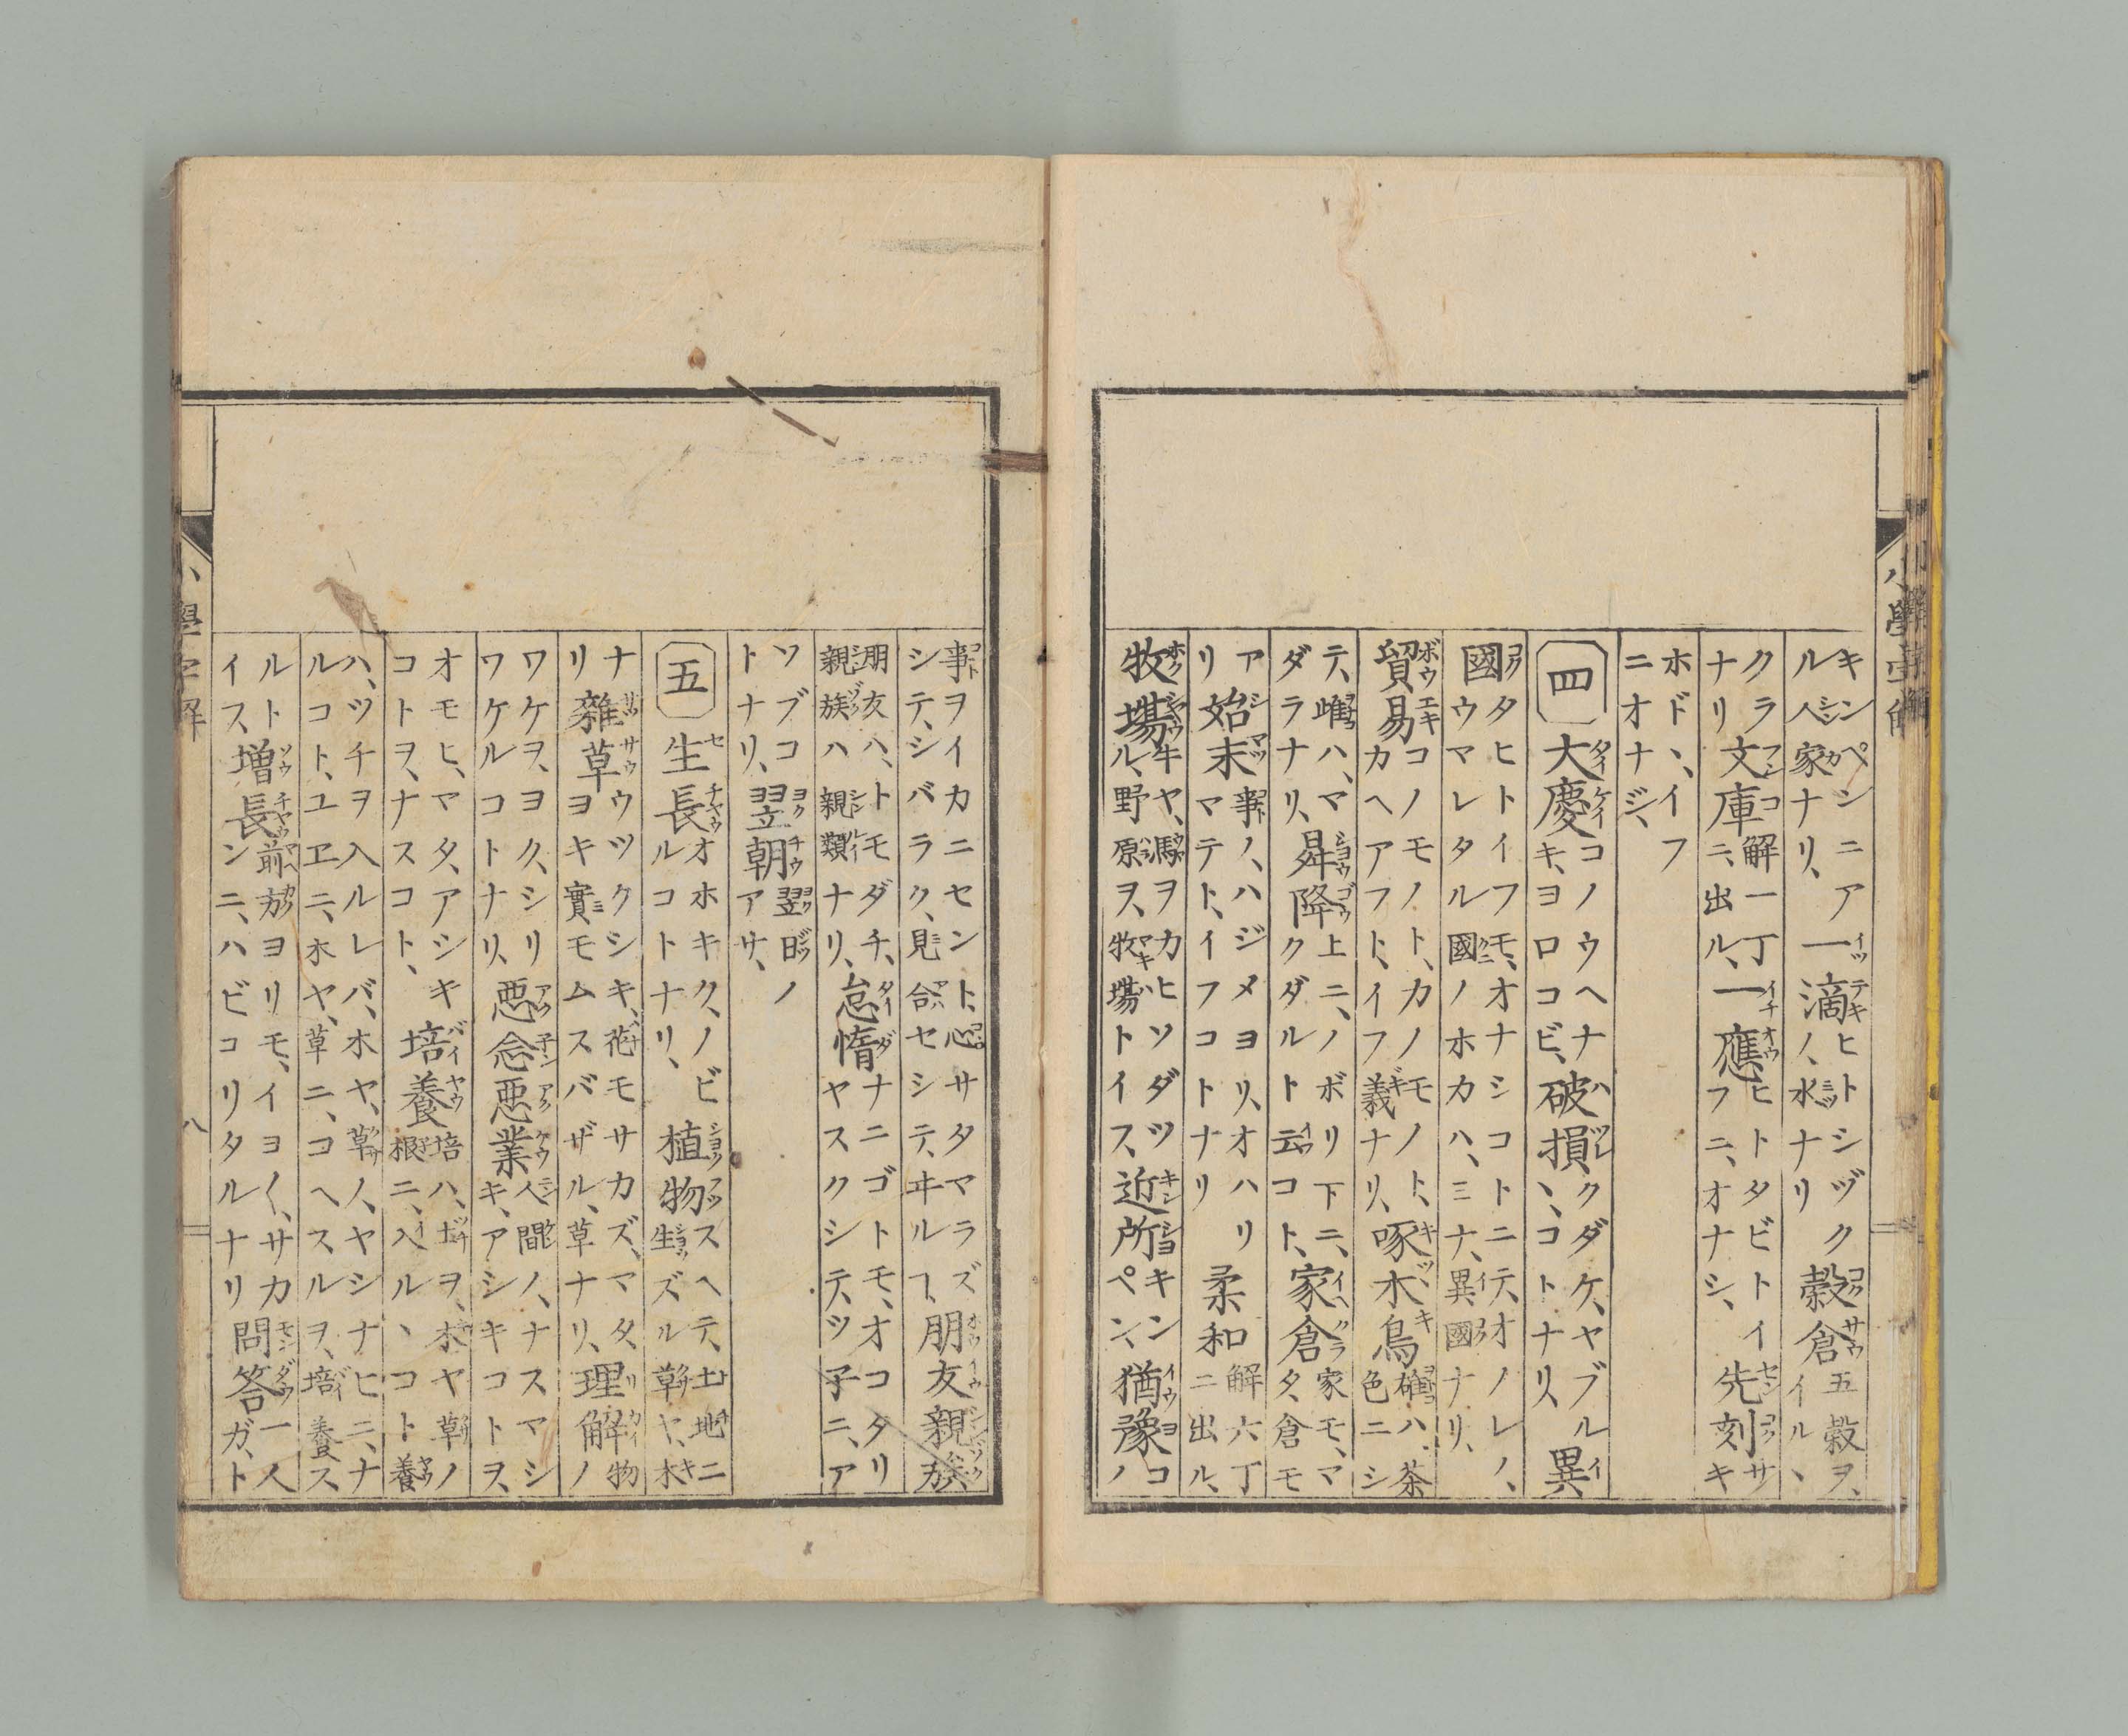 キンペンニアル人家ナリ、一滴ヒトシヅクノ、水ナリ穀倉五穀ヲ、イルヽ
クラナリ文庫解一丁ニ、出ル、一應ヒトタビトイフニ、オナシ、先刻サキ
ホドヽ、イフニオナジ、
四 大慶コノウヘナキ、ヨロコビ、破損クダケ、ヤブルヽ、コトナリ、異
國タヒトイフモ、オナシコトニテ、オノレノ、ウマレタル國ノホカハ、ミナ、異國ナリ、
貿易コノモノト、カノモノト、カヘアフト、イフ義ナリ、啄木鳥ハ、茶色ニシ
テ、雌ハ、マダラナリ、昇降上ニ、ノボリ下ニ、クダルト云コト、家倉家モ、マタ、倉モ
アリ始末事ノ、ハジメヨリ、オハリマテト、イフコトナリ柔和解六丁ニ出ル、
牧塲牛ヤ、馬ヲカヒソダツル、野原ヲ、牧塲トイス、近所キンペン、猶豫コノ
事ヲイカニセント、心サタマラズシテ、シバラク、見合セシテ、ヰルヿ、朋友親族
朋友ハ、トモダチ、親族ハ親類ナリ、怠惰ナニゴトモ、オコタリヤスクシテ、ツ子ニ、ア
ソブコトナリ、翌朝翌日ノアサ、
五 生長オホキク、ノビルコトナリ、植物スヘテ、土地ニ生ズル草ヤ、木
ナリ雜草ウツクシキ、花モサカズ、マタ、ヨキ實モムスバザル、草ナリ、理解物ノ
ワケヲ、ヨク、シリワケルコトナリ、悪念悪業人間ノ、ナスマシキ、アシキコトヲ、
オモヒ、マタ、アシキコトヲ、ナスコト、培養培ハ、土ヲ、木ヤ草ノ根ニ、入ルヽコト養
ハ、ツチヲ入ルレバ、木ヤ、草ノ、ヤシナヒニ、ナルコト、ユヱニ、木ヤ、草ニ、コヘスルヲ、培養ス
ルトイス増長前方ヨリモ、イヨ〱、サカンニ、ハビコリタルナリ問答一人ガ、ト
小學字解 八